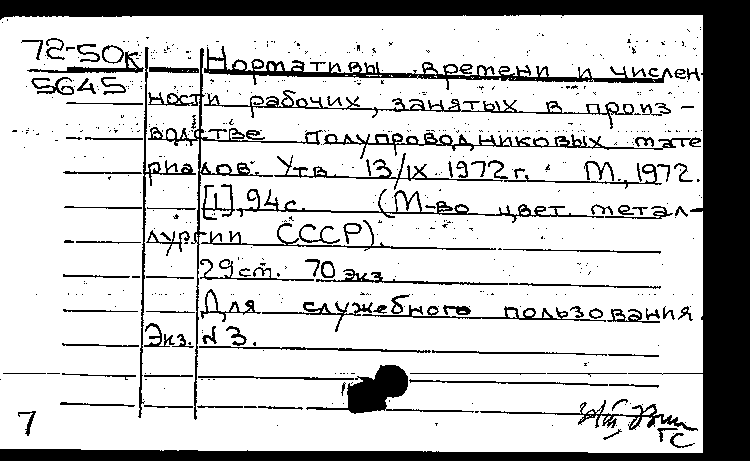 72-50к
5645
Нормативы времени и числен-
ности рабочих, занятых в произ-
водстве полупроводниковых мате
риалов. Утв 13/IX 1972г. М., 1972.
[1], 94с. (М-во цвет. метал-
лургии СССР).
29см. 70 экз.
Для служебного пользования.
Экз. N3.
7
ГС